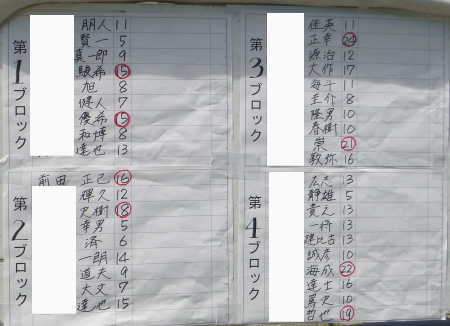 第1ブロック
朋人 11
賢一 5
真一郎 9
駿希 15
旭 8
健人 7
優希 15
和博 8
達也 13
第2ブロック
前田 正己 16
輝久 12
大樹 18
幸男 5
済 6
一朗 14
道夫 9
大文 7
達也 15
第3ブロック
佳英 11
正幸
源治 12
大作 17
海斗 11
圭介 8
隆男 10
春樹 10
崇 21
敦弥 16
第4ブロック
広志 3
静雄 5
貴之 13
一将 13
13
誠彦 10
海成 22
達士 16
篤史 10
哲也 19